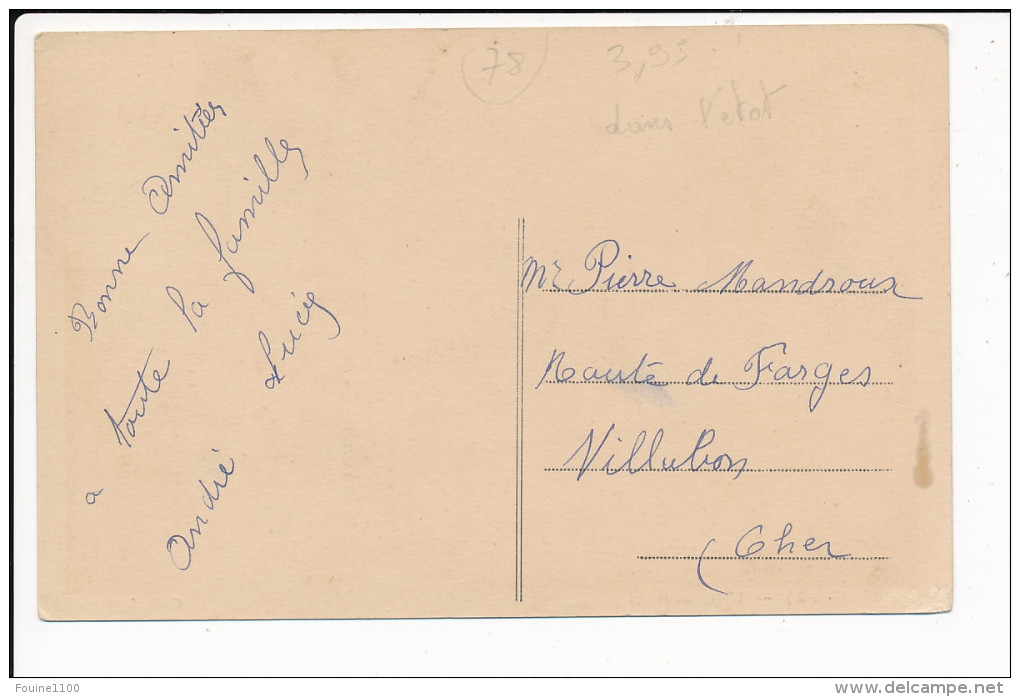 (78)
3,95
dans l'etat
Bonne Amitiés
a toute la famille
André Lucie
Mr Pierre Mandroux
Route de Farges
Villabon
(Cher
Foune1100
www.delcampe.net